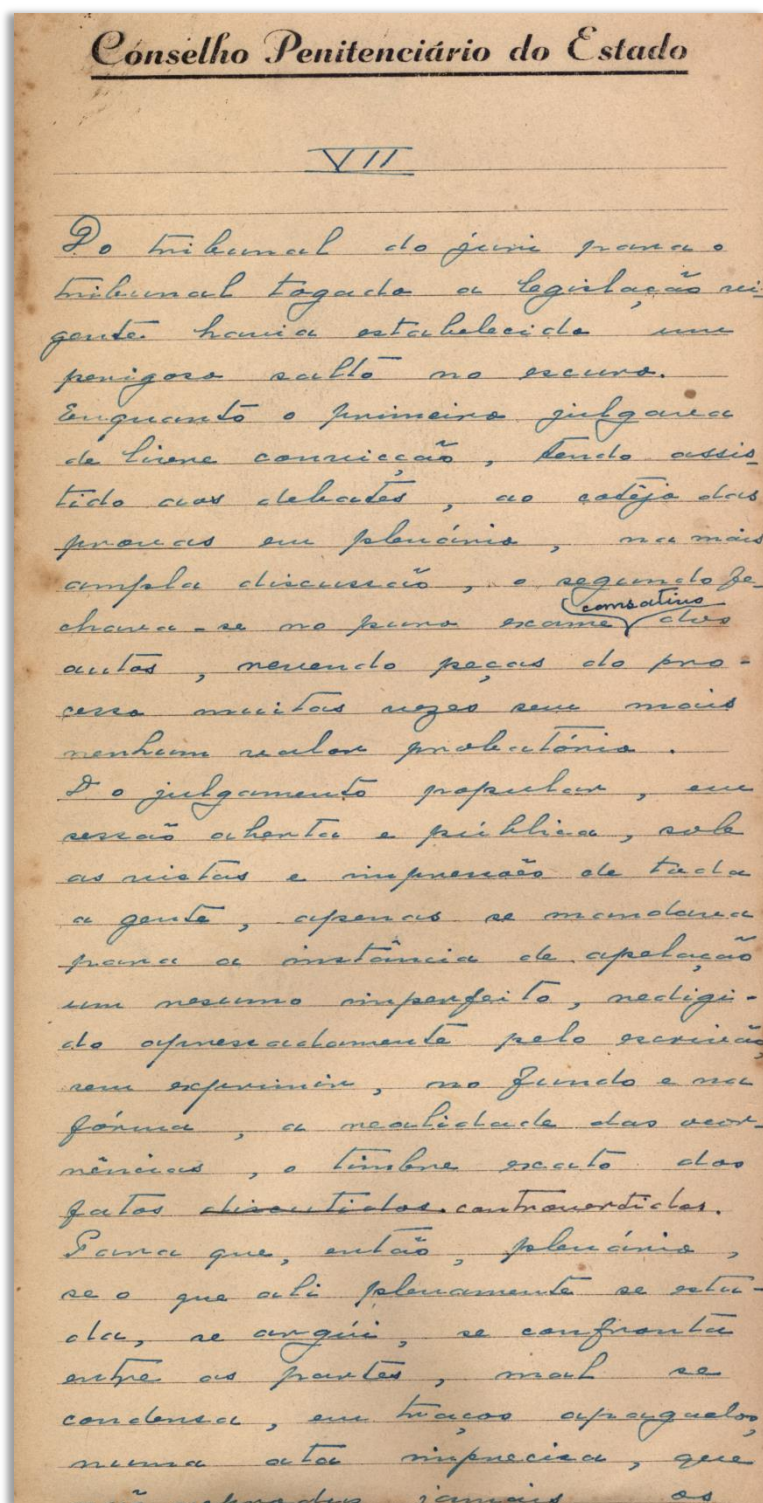 Conselho Penitenciário do Estado
VII
Do tribunal do juri para o
tribunal togado a legislação vi-
gente havia estabelecido um
perigoso salto no escuro.
Enquanto o primeiro julgava
de livre convicção, tendo assis-
tido aos debates, ao cotêjo das
provas em plenário, na mais
ampla discussão, o segundo fe-
chava-se no puro exame cansativo dos
autos, revendo peças do pro-
cesso muitas vezes sem mais
nenhum valor probatório.
Do julgamento popular, em
sessão aberta e pública, sob
as vistas e impressões de tôda
a gente, apenas se mandava
para a instância de apelação
um resumo imperfeito, redigi-
do apressadamente pelo escrivão,
sem exprimir, no fundo e na
fórma, a realidade das ocor-
rências, o timbre exato dos
fatos discutidos. controvertidos.
Para que, então, plenário,
se o que ali plenamente se estu-
da, se argúi, se confronta
entre as partes, mal se
condensa, em traços apagados,
numa ata imprecisa, que
jamais os